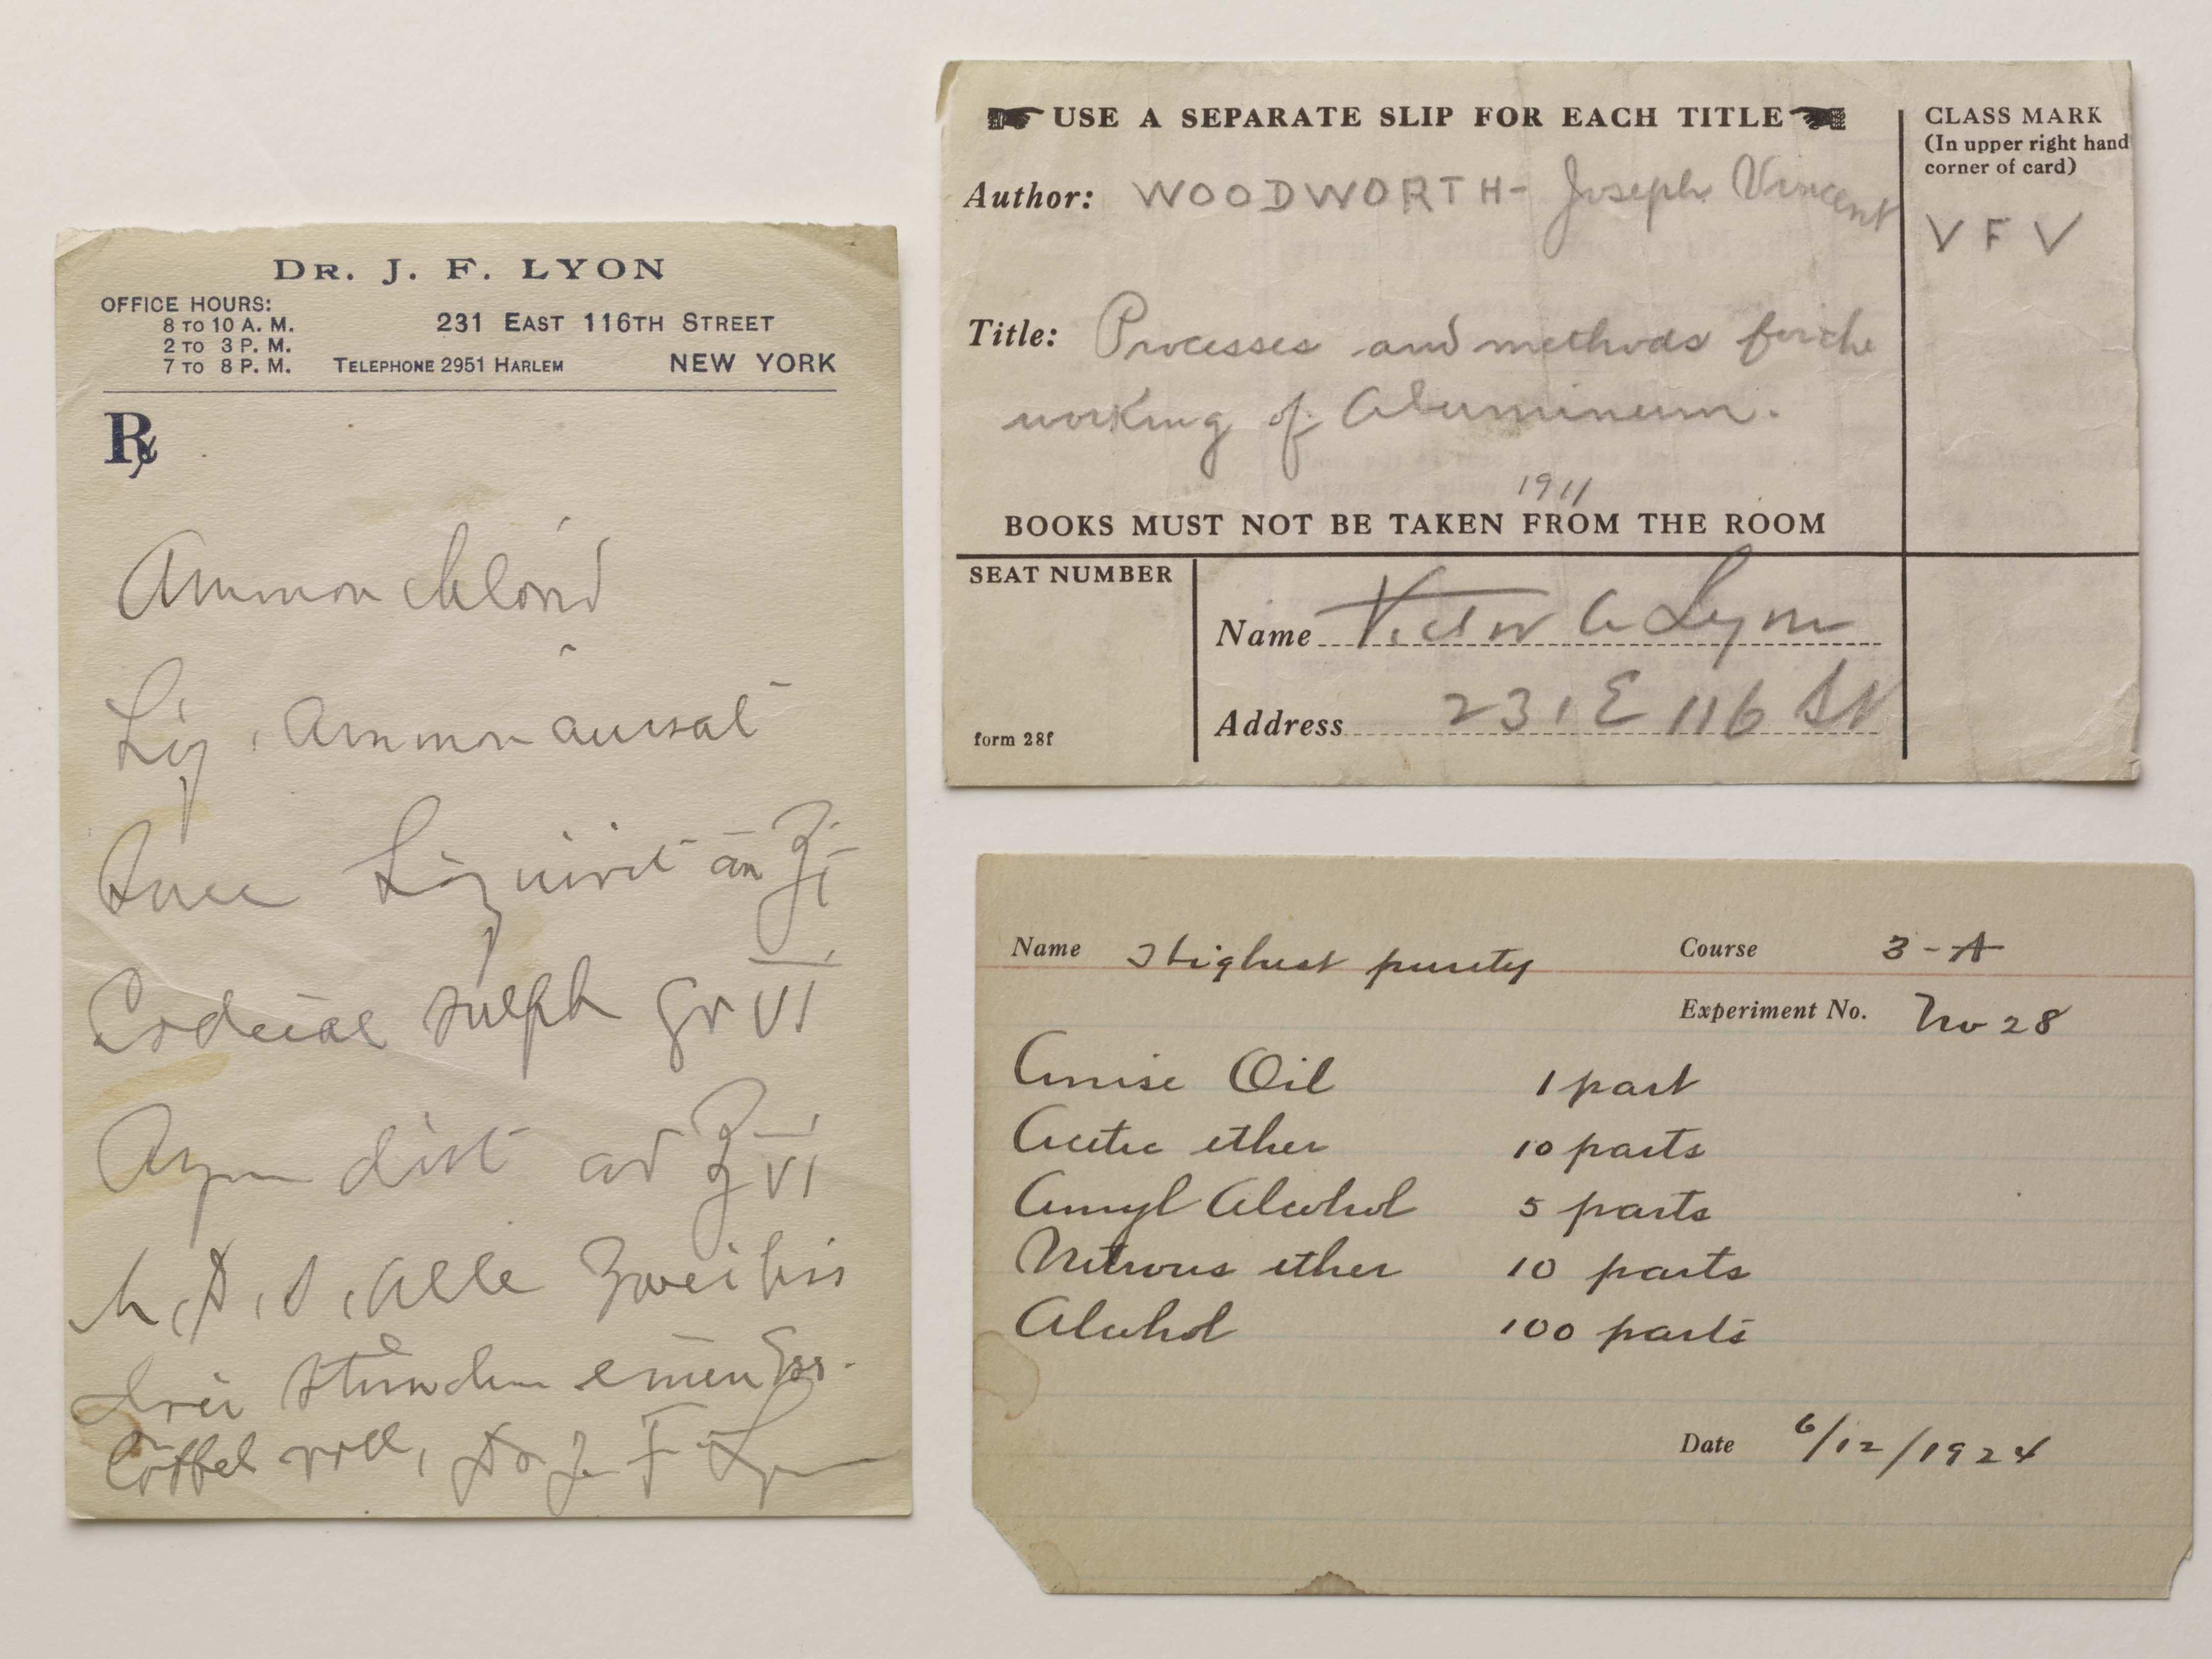 DR. J. F. LYON
OFFICE HOURS:
8 TO 10 A. M.
2 TO 3 P. M.
7 TO 8 P. M.
231 EAST 116TH STREET
TELEPHONE 2951 HARLEM
NEW YORK
Rx
Ammon chlorid
Liq. Ammon anisat
Succ Liquirit āa ℥i
Codeiae sulph gr VI
Aqu dist ad ℥VI
M. D. S. Alle Zwei bis
drei Stunden einen Ess-
löffel voll, Dr J F Lyon
☛ USE A SEPARATE SLIP FOR EACH TITLE ☚
Author: WOODWORTH- Joseph Vincent
Title: Processes and methods for the
working of Aluminum.
1911
BOOKS MUST NOT BE TAKEN FROM THE ROOM
CLASS MARK
(In upper right hand
corner of card)
V F V
SEAT NUMBER
form 28f
Name Victor A Lyon
Address 231 E 116 St
Name Highest purity
Course 3-A
Experiment No. No 28
Anise Oil 1 part
Acetic ether 10 parts
Amyl Alcohol 5 parts
Nitrous ether 10 parts
Alcohol 100 parts
Date 6/12/1924